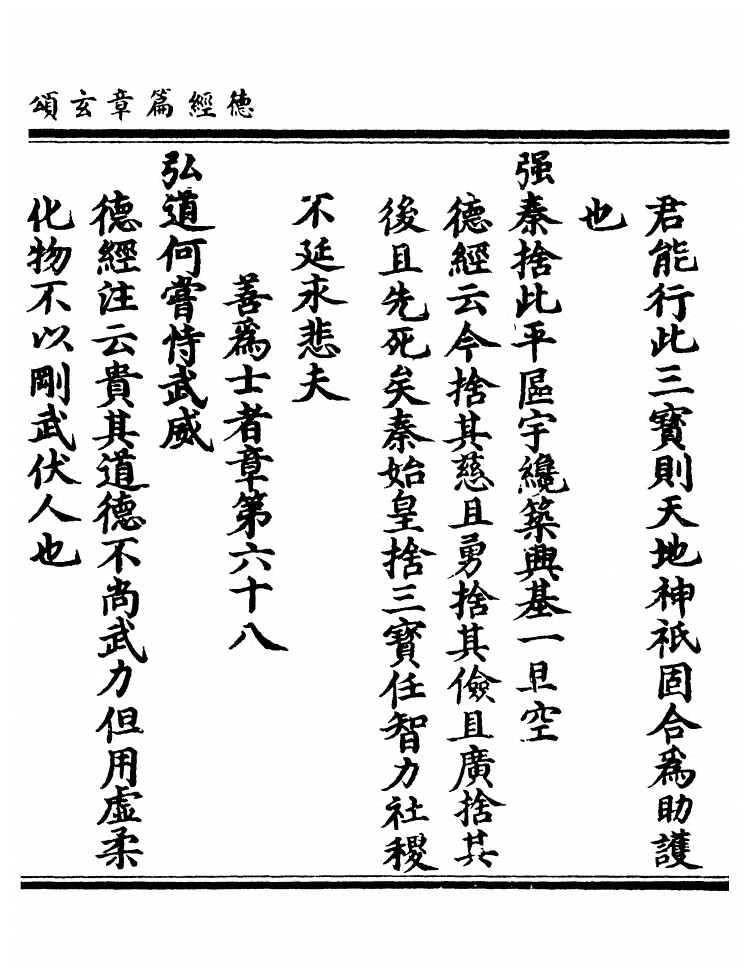 德經篇章玄頌
君能行此三寶則天地神祇固合爲助護
也
强秦捨此平區宇纔築興基一旦空
德經云今捨其慈且勇捨其儉且廣捨其
後且先死矣秦始皇捨三寶任智力社稷
不延永悲夫
善爲士者章第六十八
弘道何嘗恃武威
德經注云貴其道德不尚武力但用虛柔
化物不以剛武伏人也